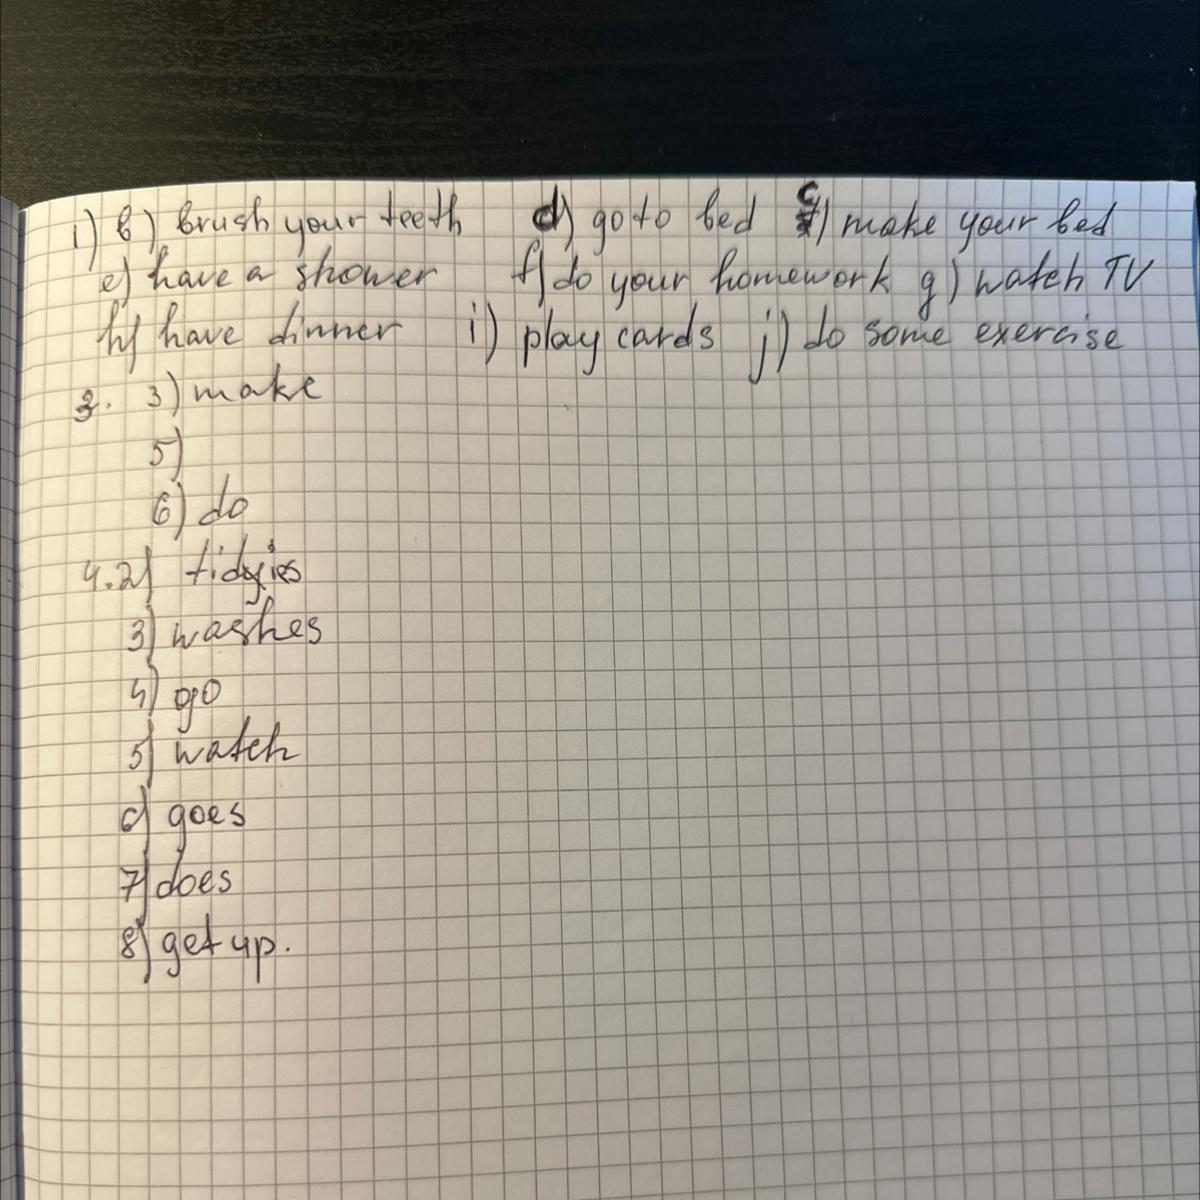 1) b) brush your teeth d) go to bed c) make your bed
e) have a shower f) do your homework g) watch TV
h) have dinner i) play cards j) do some exercise
3. 3) make
5)
6) do
4. 2) tidyies
3) washes
4) go
5) watch
6) goes
7) does
8) get up.